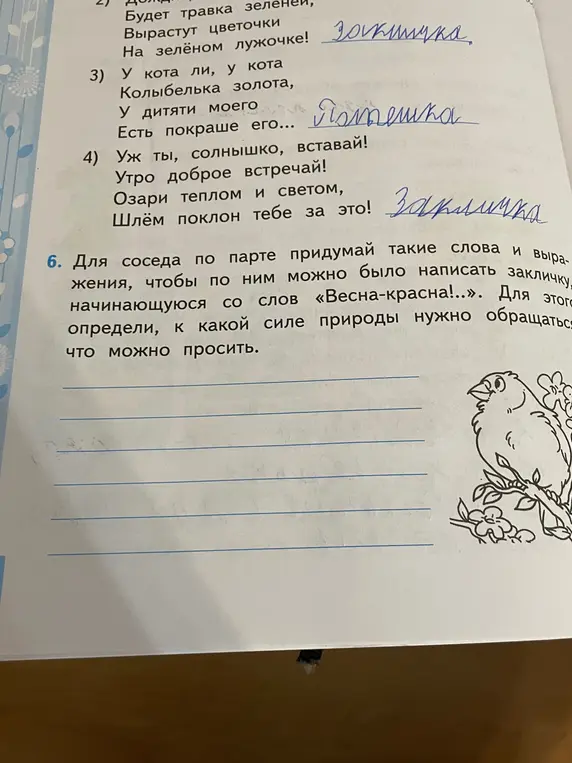 2) Дожд
Будет травка зеленей,
Вырастут цветочки
На зелёном лужочке! Закличка
3) У кота ли, у кота
Колыбелька золота,
У дитяти моего
Есть покраше его... Потешка
4) Уж ты, солнышко, вставай!
Утро доброе встречай!
Озари теплом и светом,
Шлём поклон тебе за это! Закличка
6. Для соседа по парте придумай такие слова и выра-
жения, чтобы по ним можно было написать закличку,
начинающуюся со слов «Весна-красна!..». Для этого
определи, к какой силе природы нужно обращаться
что можно просить.